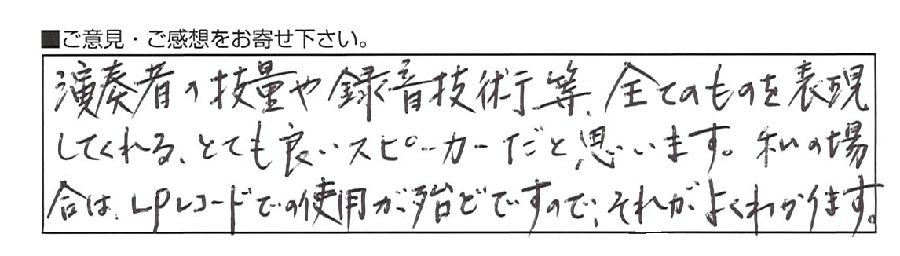 ■ご意見・ご感想をお寄せ下さい。
演奏者の技量や録音技術等、全てのものを表現
してくれる、とても良いスピーカーだと思います。私の場
合は、LPレコードでの使用が殆どですので、それがよくわかります。